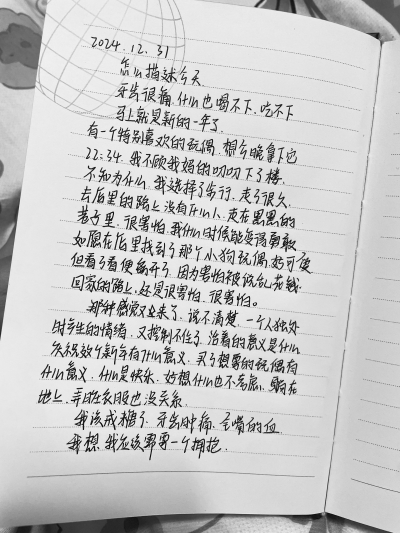 2024.12.31
怎么描述今天
牙齿很痛,什么也喝不下,吃不下
马上就是新的一年了
有一个特别喜欢的玩偶,想今晚拿下它
22:34,我不顾我妈的叨叨下了楼
不知为什么,我选择了步行,走了很久
去店里的路上没有什么人,走在黑黑的
巷子里,很害怕,我什么时候能变得勇敢
如愿在店里找到了那个小狗玩偶,好可爱
但看了看便离开了,因为害怕被说乱花钱
回家的路上,还是很害怕,很害怕。
那种感觉又来了,说不清楚,一个人独处
时产生的情绪,又控制不住了,活着的意义是什么
庆祝这个新年有什么意义,买了想要的玩偶有
什么意义,什么是快乐,好想什么也不考虑,躺在
地上,弄脏衣服也没关系
我该戒糖了,牙齿肿痛,全嘴的血
我想,我应该需要一个拥抱